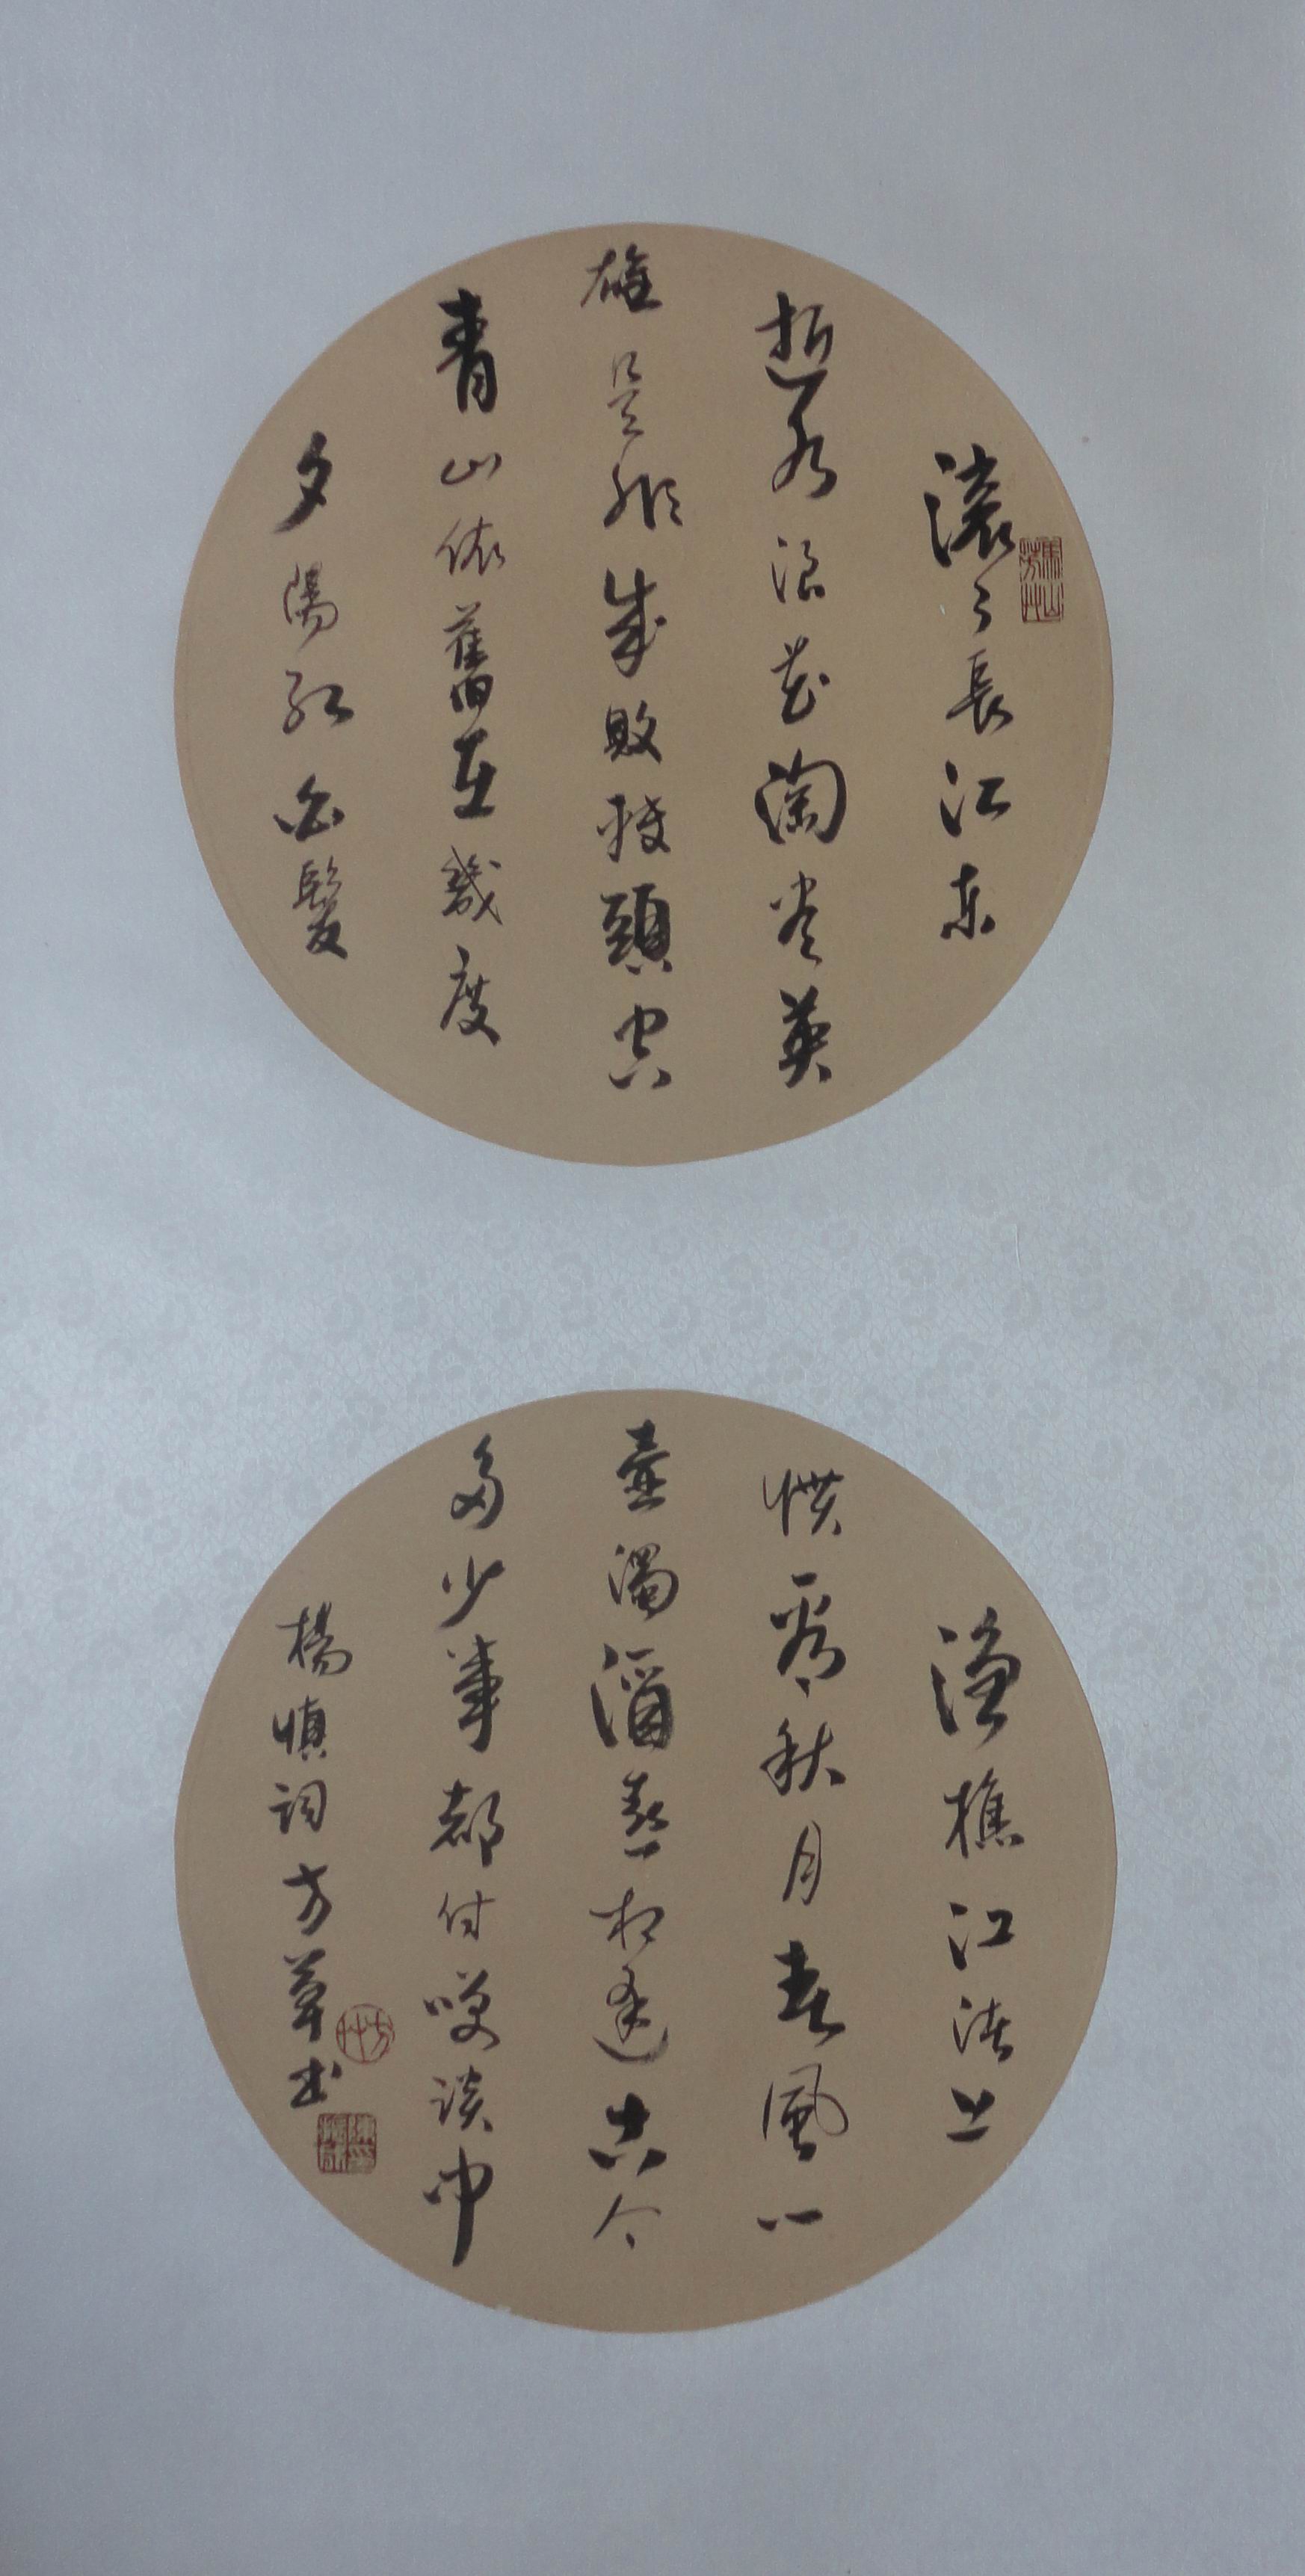 滚々長江东
逝水浪花淘尽英
雄是非成敗转頭空
青山依舊在幾度
夕陽红白髮
渔樵江渚上
惯看秋月春風一
壶濁酒喜相逢古今
多少事都付笑谈中
楊慎词方草书